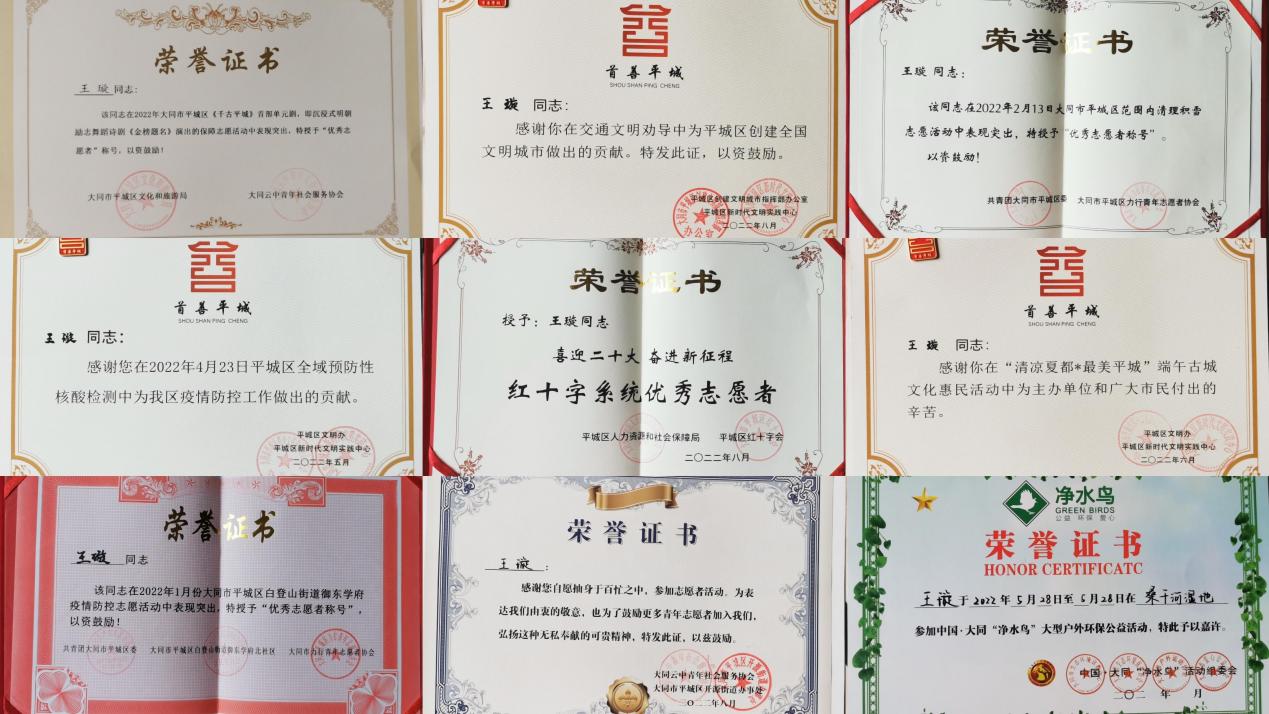 荣誉证书
王璇同志：
该同志在2022年大同市平城区《千古平城》首部单元剧，即沉浸式明朝
励志舞蹈诗剧《金榜题名》演出的保障志愿活动中表现突出，特授予“优秀志
愿者”称号，以资鼓励！
大同市平城区文化和旅游局 大同云中青年社会服务协会
首善平城
SHOU SHAN PING CHENG
王璇 同志：
感谢你在交通文明劝导中为平城区创建全国
文明城市做出的贡献。特发此证，以资鼓励。
平城区创建文明城市指挥部办公室
平城区新时代文明实践中心
二〇二二年八月
荣誉证书
王璇 同志：
该同志在2022年2月13日大同市平城区范围内清理积雪
志愿活动中表现突出，特授予“优秀志愿者称号”。
以资鼓励！
共青团大同市平城区委 大同市平城区力行青年志愿者协会
首善平城
SHOU SHAN PING CHENG
王璇 同志：
感谢您在2022年4月23日平城区全域预防性
核酸检测中为我区疫情防控工作做出的贡献。
平城区文明办
平城区新时代文明实践中心
二〇二二年五月
荣誉证书
授予：王璇同志
喜迎二十大 奋进新征程
红十字系统优秀志愿者
平城区人力资源和社会保障局 平城区红十字会
二〇二二年八月
首善平城
SHOU SHAN PING CHENG
王璇 同志：
感谢你在“清凉夏都*最美平城”端午古城
文化惠民活动中为主办单位和广大市民付出的
辛苦。
平城区文明办
平城区新时代文明实践中心
二〇二二年六月
荣誉证书
王璇 同志
该同志在2022年1月份大同市平城区白登山街道御东学府
疫情防控志愿活动中表现突出，特授予“优秀志愿者称号”，
以资鼓励！
共青团大同市平城区委 大同市平城区白登山街道御东学府北社区 大同市力行青年志愿者协会
荣誉证书
王璇：
感谢您自愿抽身于百忙之中，参加志愿者活动。为表
达我们由衷的敬意，也为了鼓励更多青年志愿者加入我们，
弘扬这种无私奉献的可贵精神，特发此证，以兹鼓励。
大同云中青年社会服务协会
大同市平城区开源街道办事处
二〇二二年八月
净水鸟
GREEN BIRDS
公益 环保 爱心
荣誉证书
HONOR CERTIFICATC
王璇于2022年5月28日至5月28日在 桑干河湿地
参加中国·大同“净水鸟”大型户外环保公益活动，特此予以嘉许。
中国·大同“净水鸟”活动组委会
二〇二 年 月